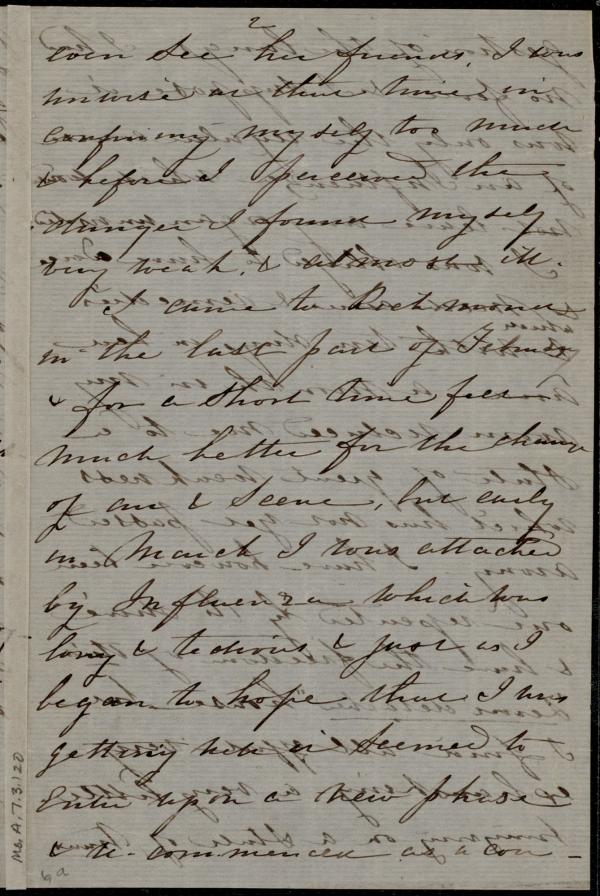 2
even see her friends. I was
unwise at that time in
confining myself too much
& before I perceived the
danger I found myself
very weak, & almost ill.
I came to Richmond
in the last part of
& for a short time felt
much better for the change
of air & scene, but early
in March I was attacked
by Influenza which was
long & tedious & just as I
began to hope that I was
getting well it seemed to
enter upon a new phase
& re-commenced as a cou-
Ms. A. 7. 3. 120